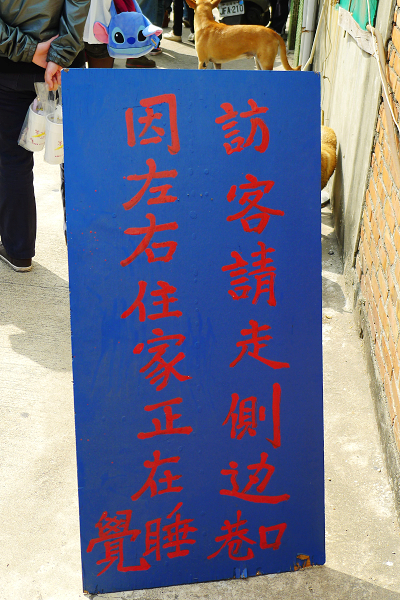 訪客請走側边巷口
因左右住家正在睡覺